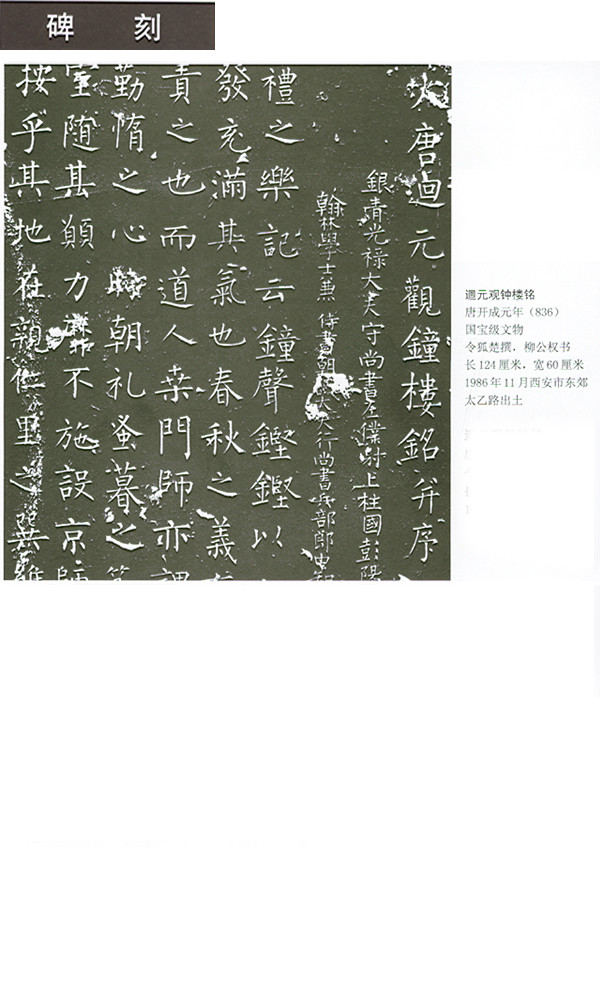 碑 刻
大唐迴元觀鐘樓銘并序
銀青光祿大夫守尚書左僕射上柱國彭陽
翰林學士兼侍書朝大夫行尚書兵部郎中知
禮之樂記云鐘聲鏗鏗以
發充滿其氣也春秋之義
責之也而道人桒門師亦謂
勤惰之心時朝礼蚤暮之
室随其願力不施設京師
按乎其地在親仁里之巽維
迴元观钟楼铭
唐开成元年（836）
国宝级文物
令狐楚撰，柳公权书
长 124 厘米，宽 60 厘米
1986 年 11 月西安市东郊
太乙路出土